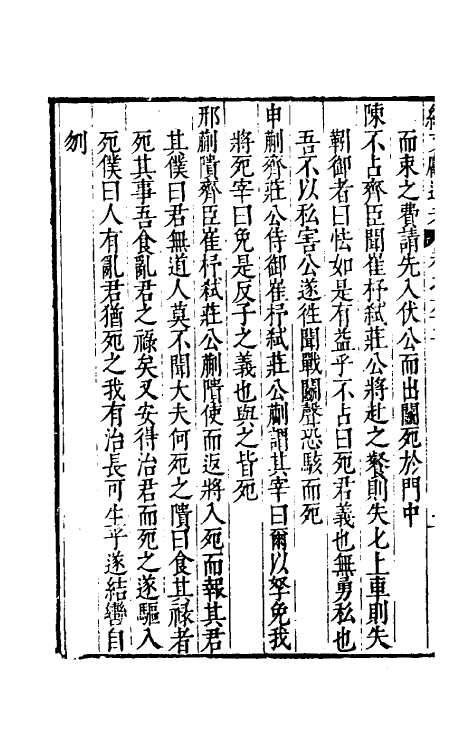 而束之費請先入伏公而出鬭死於門中
陳不占齊臣聞崔杼弒莊公將赴之餐則失匕上車則失
靷御者曰怯如是有益乎不占曰死君義也無勇私也
吾不以私害公遂徃聞戰鬭聲恐駭而死
申蒯齊莊公侍御崔杼弒莊公蒯謂其宰曰爾以孥免我
將死宰曰免是反子之義也與之皆死
邢蒯隤齊臣崔杼弒莊公蒯隤使而返將入死而報其君
其僕曰君無道人莫不聞大夫何死之隤曰食其祿者
死其事吾食亂君之祿矣又安得治君而死之遂驅入
死僕曰人有亂君猶死之我有治長可生乎遂結轡自
刎